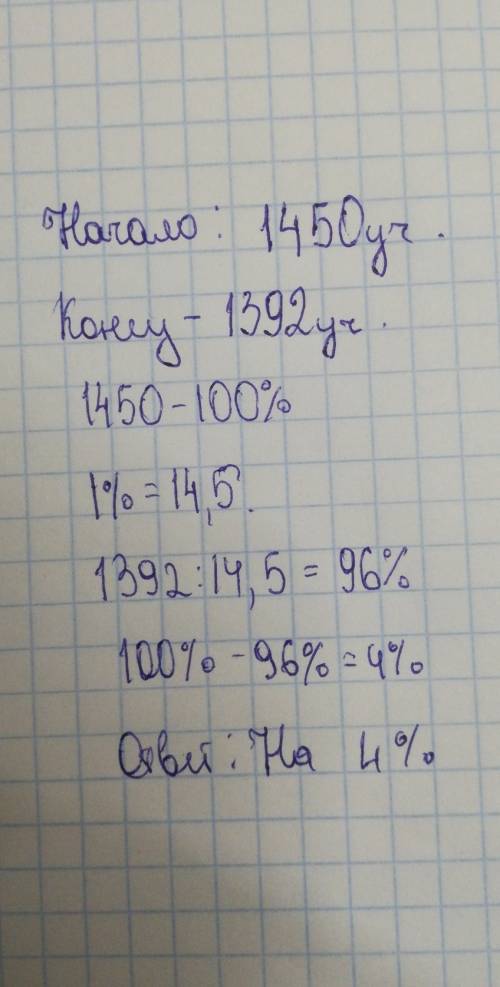 Начало: 1450 уч.
Концу - 1392 уч.
1450 - 100%
1% = 14,5.
1392:14,5 = 96%
100% - 96% = 4%
Ответ: На 4%